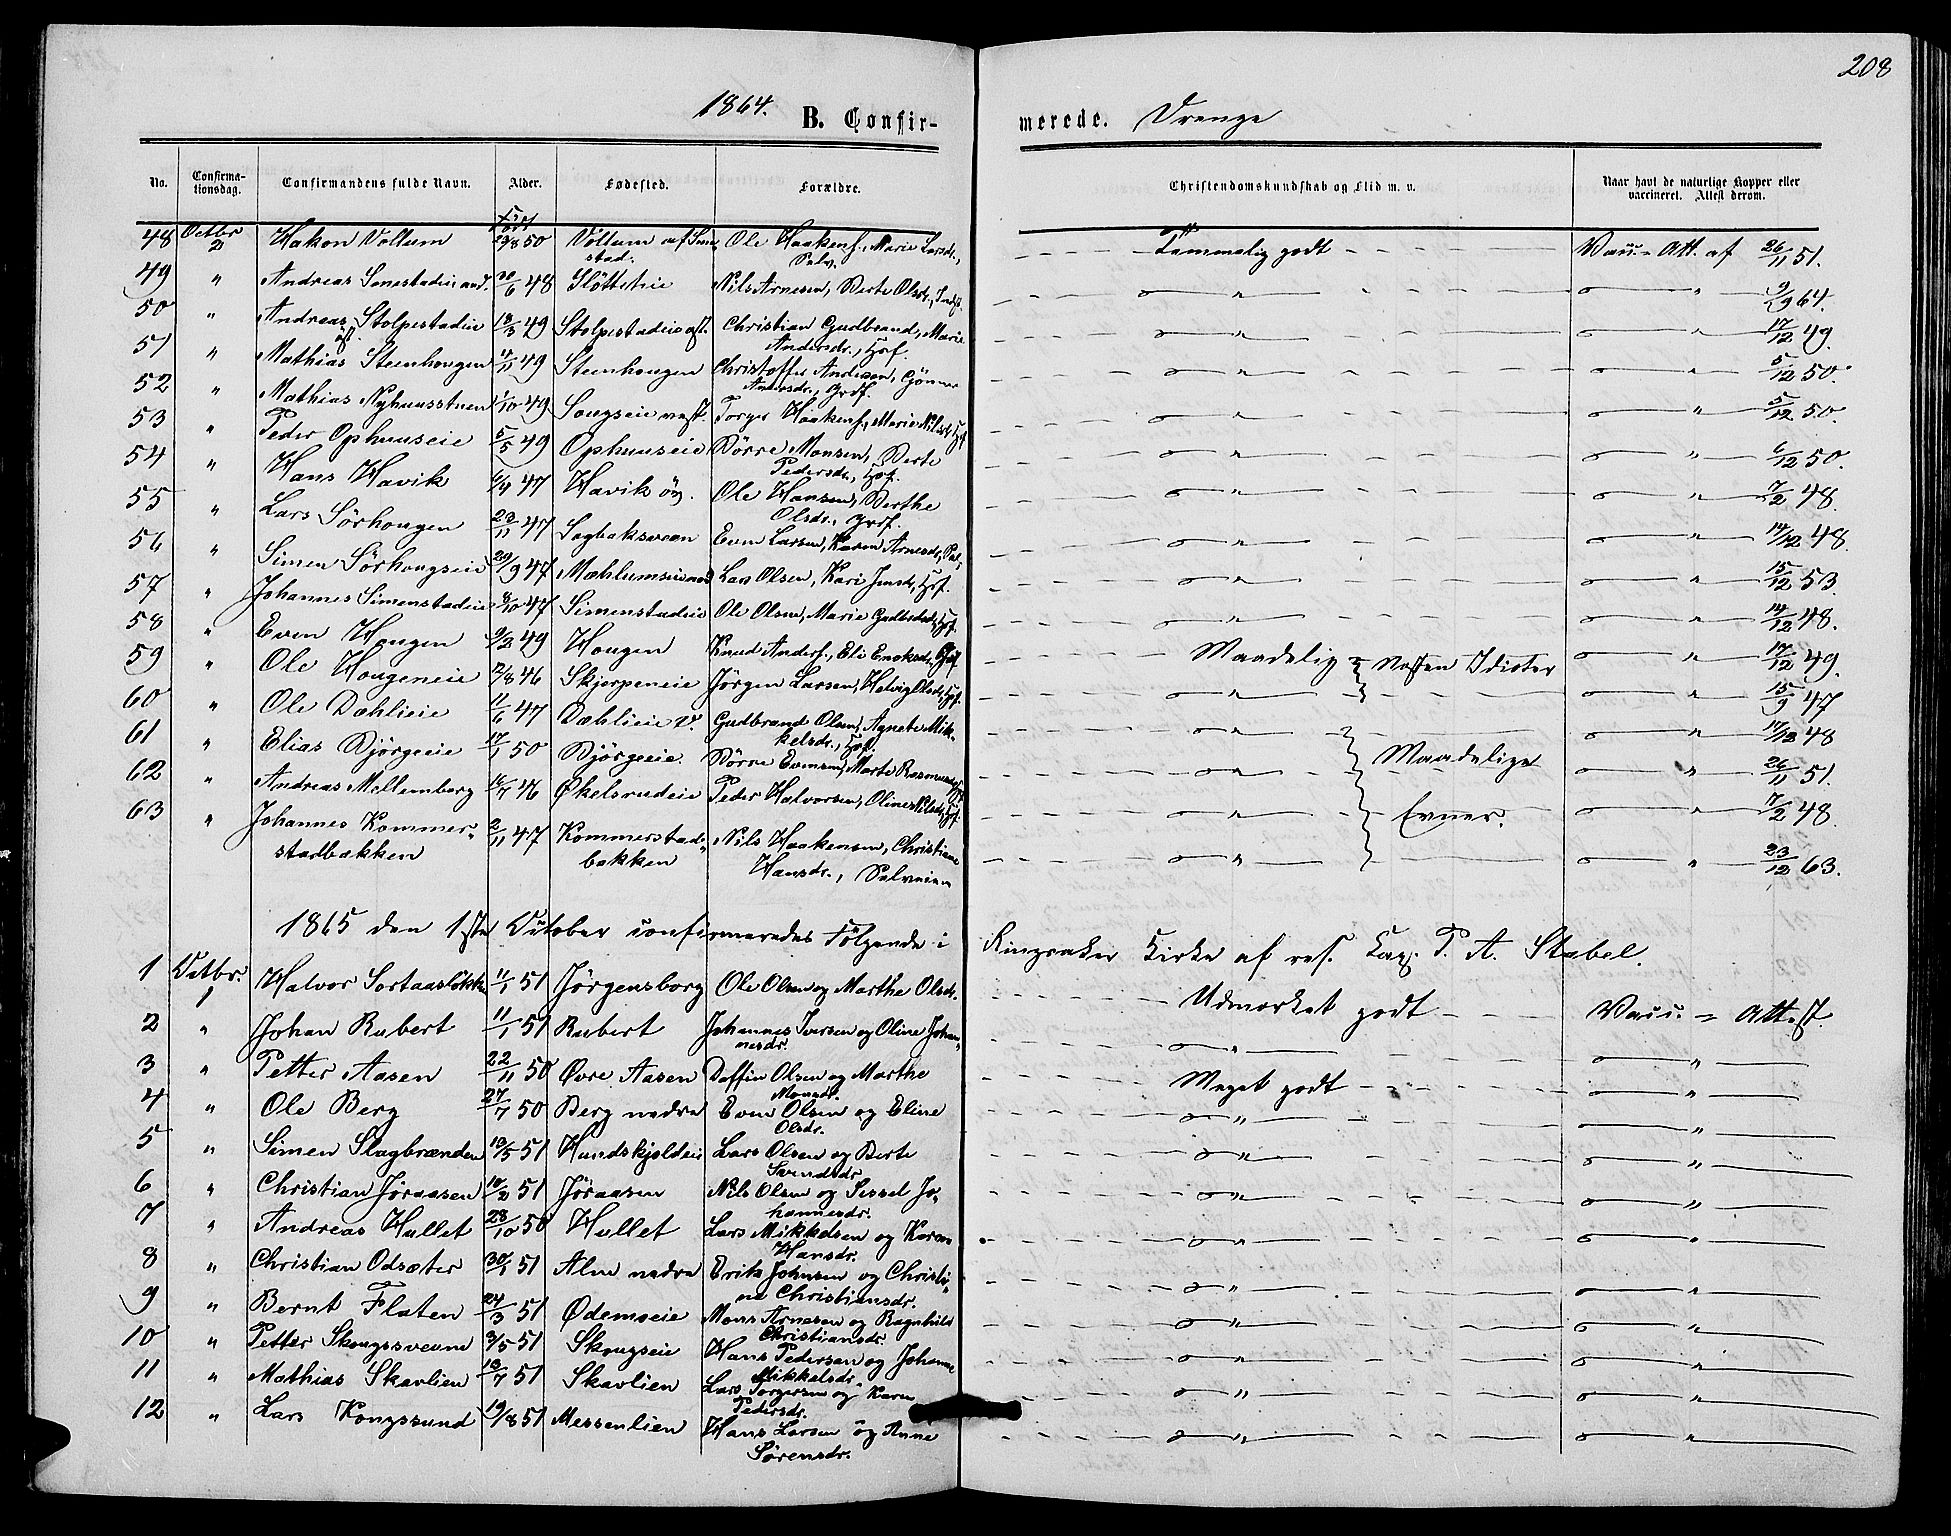 208
1864. B. Confirmerede. Drenge
No. Confirmationsdag. Confirmandens fulde Navn. Alder. Fødested. Forældre. Christendomskundskab og Flid m. v. Naar havt de naturlige Kopper eller vaccineret. Attest derom.
48 Octbr 2 Hakon Vollum 29/8 50 Vollum af Simestad. Ole Haakens., Marie Larsdr., Selv. Temmelig godt Vacc. Att. af 26/11 51.
49 " Andreas Simestadeie 20/6 48 Slötteteie Nils Arnesen, Berte Olsdr., Inds. " " 64.
50 " Andreas Stolpestadeie øst. 18/3 49 Stolpestadeie øst. Christian Gudbrand, Marie Andersdr., Hsf. " " 17/12 49.
51 " Mathias Steenhougen 4/11 49 Steenhougen Christoffer Andersen, Andersdr., Grdf. " " 5/12 50.
52 " Mathias Nyhuusstuen 1/10 49 Sougseie vest. Torger Haakens., Marie Nilsdr. Hsf " " 5/12 50.
53 " Peder Ophuuseie 5/5 49 Ophuuseie Börre Monsen, Berte Pedersdr., Hsf. " " 6/12 50.
54 " Hans Havik 47 Havik öv. Ole Hansen, Berthe Olsdr., Grdf. " " 7/2 48.
55 " Lars Sörhougen 23/11 47 Sagbaksveen Even Larsen, Karen Arnesdr., " " 14/12 48.
56 " Simen Sörhougseie 29/9 47 Mæhlumseie Lars Olsen, Kari Jensdr., Hsf. " " 15/12 53.
57 " Johannes Simenstadeie 8/10 47 Simenstadeie Ole Olsen, Marie Gudbrdsdr., Hsf. " " 14/12 48.
58 " Even Hougen 9/2 49 Hougen Knud Anders., Eli Enoksdr., Grdf. Maadelig Næsten Idioter " 17/12 49.
59 " Ole Hougeneie 12/8 46 Skjerpeneie Jörgen Larsen, Helvig Olsdr., Hsf. " " 15/9 47
60 " Ole Dæhlieie 11/6 47 Dæhlieie v. Gudbrand Olsen, Agnete Mikkelsdr., Hsf. " " 48
61 " Elias Bjørgeeie 17/1 50 Bjørgeeie. Börre Evensen, Marte Rasmusdr. " Maadelige " 26/11 51.
62 " Andreas Mellemberg 16/7 46 Økelsrudeie Peder Halvorsen, Oline Nilsdr., Hsf. " Evner. " 7/2 48.
63 " Johannes Kommerstadbakken 2/11 47 Kommerstadbakken Nils Haakensen, Christiane Hansdr., Selveiere " " 23/12 63.
1865 den 1ste October confirmeredes Følgende i Ringsaker Kirke af res. Cap. P. A. Stabel.
1 Octbr. 1 Halvor Sortaasløkken 11/1 51 Jörgensborg Ole Olsen og Marthe Olsdr. Udmærket godt Vacc. Attest.
2 " Johan Rubert 11/1 51 Rubert Johannes Iversen og Oline Johannesdr. " "
3 " Petter Aasen 22/11 50 Øvre Aasen Daffin Olsen og Marthe Monsdr. Meget godt "
4 " Ole Berg 27/7 50 Berg nedre Even Olsen og Eline Olsdr. " "
5 " Simen Slagbrænden 19/5 51 Hundskjoldeie Lars Olsen og Berte Svendsdr. " "
6 " Christian Jöraasen 10/2 51 Jöraasen Nils Olsen og Sissel Johannesdr. " "
7 " Andreas Hullet 28/10 50 Hullet Lars Mikkelsen og Karen Hansdr. " "
8 " Christian Odsæter 30/1 51 Alm nedre Erik Johnsen og Christine Christiansdr. " "
9 " Bernt Flaten 24/3 51 Ødemoeie Mons Arnesen og Ragnhild Christiansdr. " "
10 " Petter Skougssveen 3/5 51 Skougseie Hans Pedersen og Johanne Mikkelsdr. " "
11 " Mathias Skavlien 18/7 51 Skavlien Lars Torgersen og Karen Pedersdr. " "
12 " Lars Kongssund 19/8 51 Messenlien Hans Larsen og Anne Sörensdr. " "